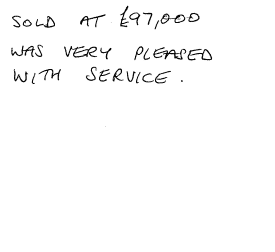 SOLD AT £97,000
WAS VERY PLEASED
WITH SERVICE.